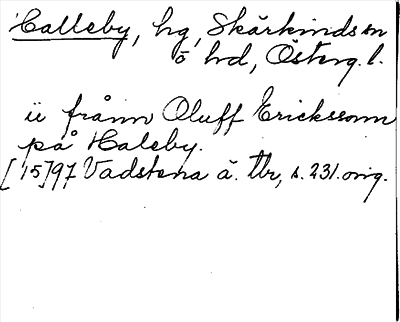 Halleby, hg, Skärkinds sn
ö hd, Österg. l.
ii frånn Oluff Ericksonn
på Haleby.
[15]97 Vadstena ä. tbr, s. 231. orig.